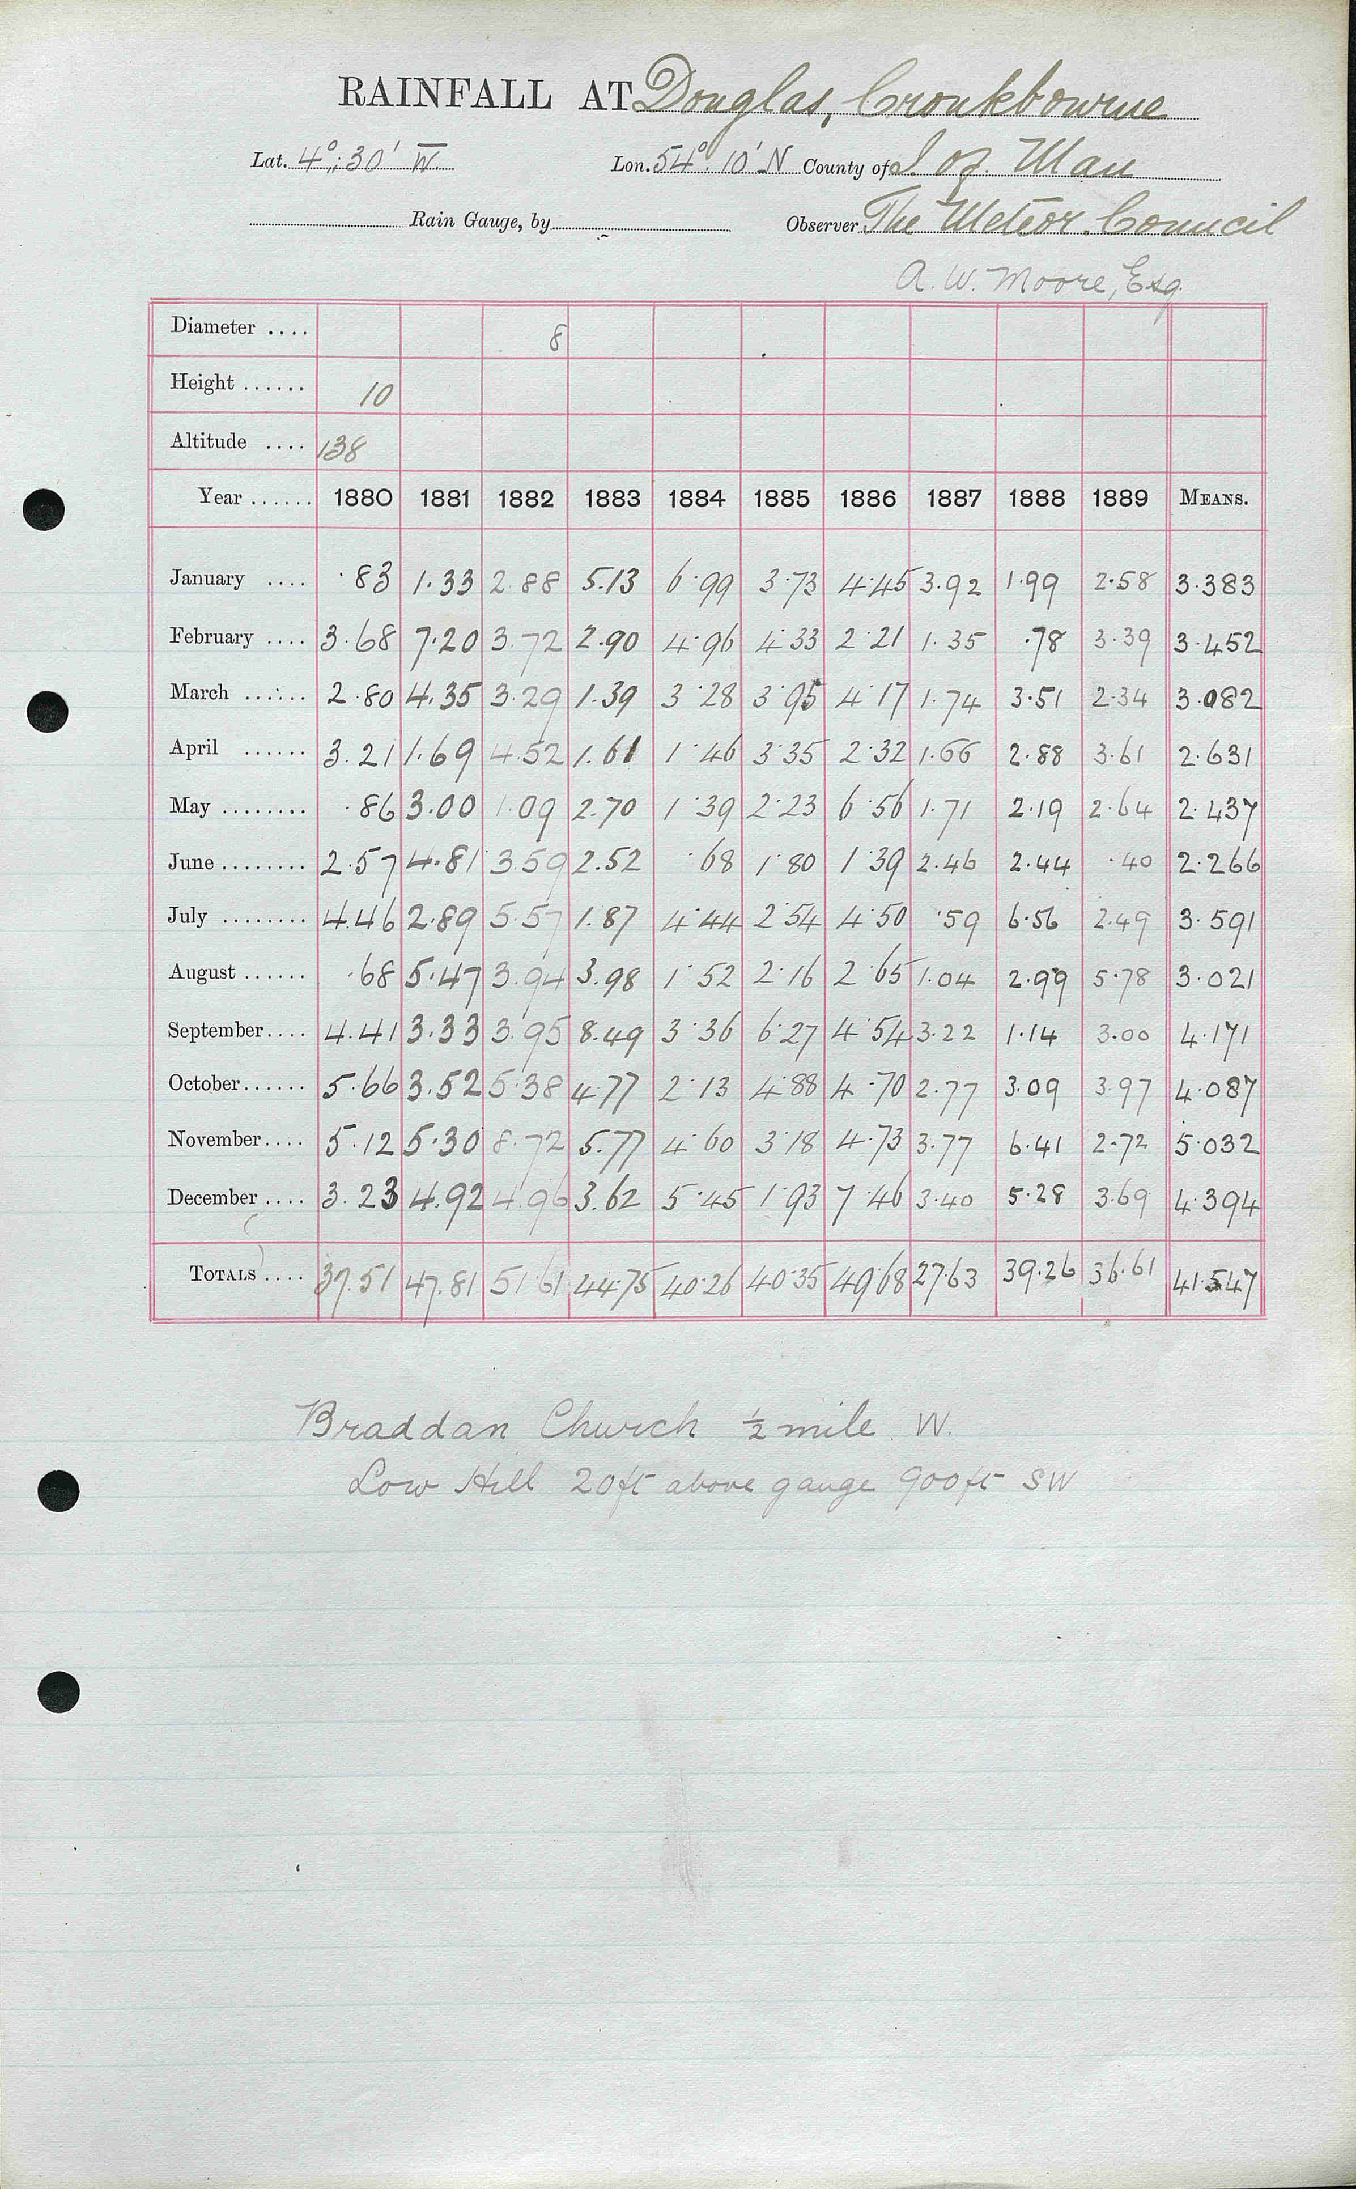 RAINFALL AT Douglas, Cronkbourne
Lat. 4°: 30' W Lon. 54° 10' N County of I. of. Man
Rain Gauge, by Observer The Meteor. Council
A. W. Moore, Esq.
Diameter .... 8
Height ...... 10
Altitude .... 138
Year ...... 1880 1881 1882 1883 1884 1885 1886 1887 1888 1889 MEANS.
January .... .83 1.33 2.88 5.13 6.99 3.73 4.45 3.92 1.99 2.58 3.383
February .... 3.68 7.20 3.72 2.90 4.96 4.33 2.21 1.35 .78 3.39 3.452
March ...... 2.80 4.35 3.29 1.39 3.28 3.95 4.17 1.74 3.51 2.34 3.082
April ...... 3.21 1.69 4.52 1.61 1.46 3.35 2.32 1.66 2.88 3.61 2.631
May ........ .86 3.00 1.09 2.70 1.39 2.23 6.56 1.71 2.19 2.64 2.437
June ........ 2.57 4.81 3.59 2.52 .68 1.80 1.39 2.46 2.44 .40 2.266
July ........ 4.46 2.89 5.57 1.87 4.44 2.54 4.50 .59 6.56 2.49 3.591
August ...... .68 5.47 3.94 3.98 1.52 2.16 2.65 1.04 2.99 5.78 3.021
September .... 4.41 3.33 3.95 8.49 3.36 6.27 4.54 3.22 1.14 3.00 4.171
October ...... 5.66 3.52 5.38 4.77 2.13 4.88 4.70 2.77 3.09 3.97 4.087
November .... 5.12 5.30 8.72 5.77 4.60 3.18 4.73 3.77 6.41 2.72 5.032
December .... 3.23 4.92 4.96 3.62 5.45 1.93 7.46 3.40 5.28 3.69 4.394
TOTALS .... 37.51 47.81 51.61 44.75 40.26 40.35 49.68 27.63 39.26 36.61 41.547
Braddan Church ½ mile W.
Low Hill 20ft above gauge 900ft SW